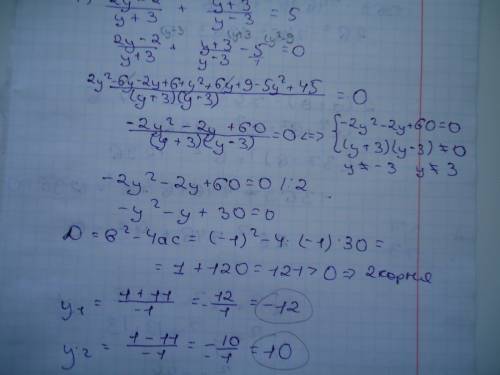 2y-2/y+3 + y+3/y-3 = 5
2y-2/y+3 + y+3/y-3 - 5/1 = 0
2y²-6y-2y+6+y²+6y+9-5y²+45/(y+3)(y-3) = 0
-2y²-2y+60/(y+3)(y-3) = 0 <=> { -2y²-2y+60=0
(y+3)(y-3) ≠ 0
y ≠ -3 y ≠ 3
-2y²-2y+60=0 |:2
-y²-y+30=0
D = в²-4ac = (-1)²-4·(-1)·30 =
= 1+120=121>0 => 2корня
y₁ = 1+11/-1 = -12/1 = -12
y₂ = 1-11/-1 = -10/-1 = 10